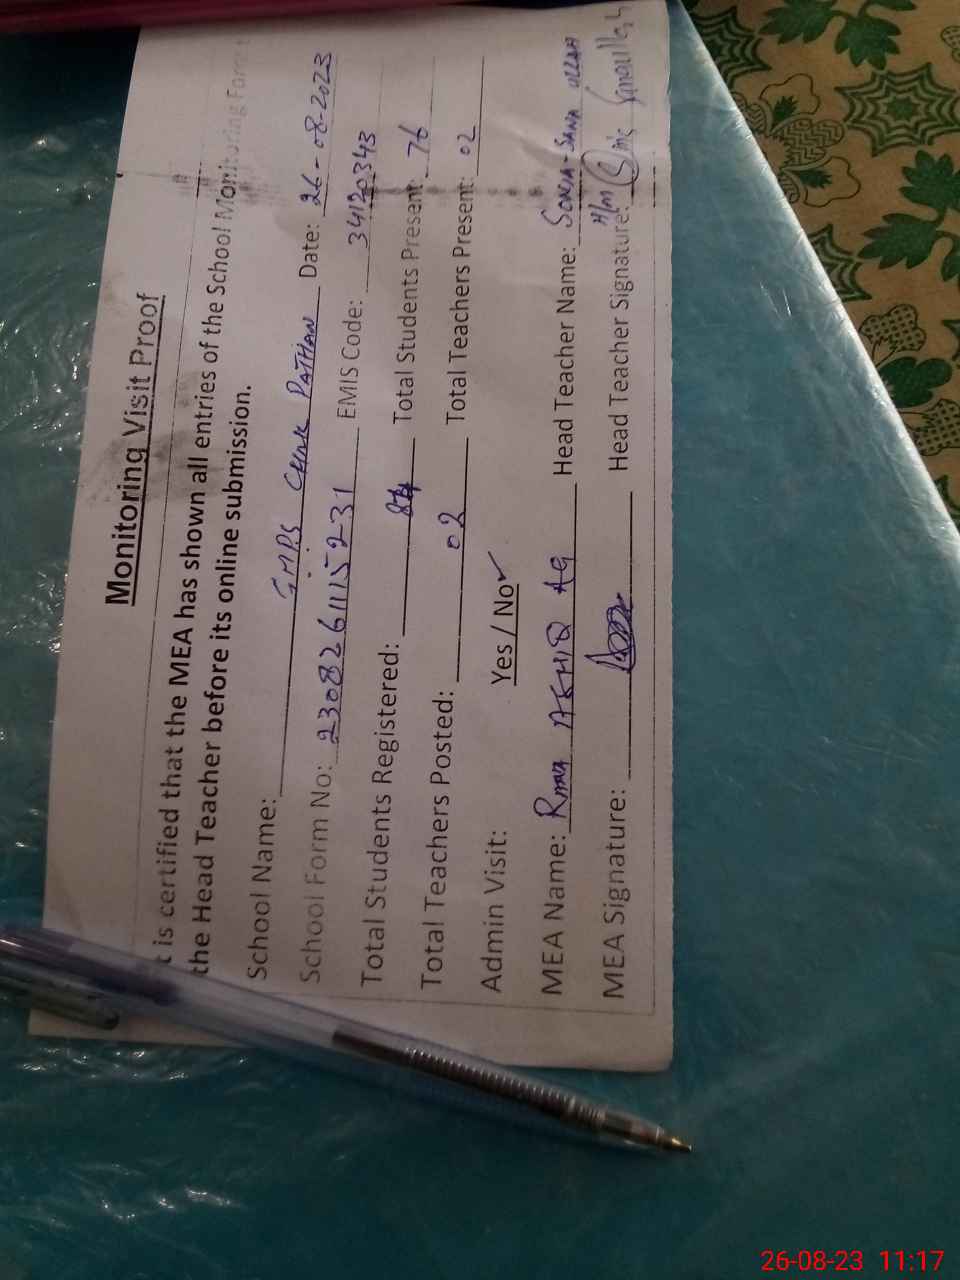 Monitoring Visit Proof
t is certified that the MEA has shown all entries of the School Monitoring Form t
the Head Teacher before its online submission.
School Name: GMPS CHAK PATHAN Date: 26-08-2023
School Form No: 2308261115231 EMIS Code: 34120343
Total Students Registered: Total Students Present: 76
Total Teachers Posted: 02 Total Teachers Present: 02
Admin Visit: Yes / No✓
MEA Name: Head Teacher Name: SONIA-SANA ULLAH
MEA Signature: Head Teacher Signature: Sanaullah
26-08-23 11:17